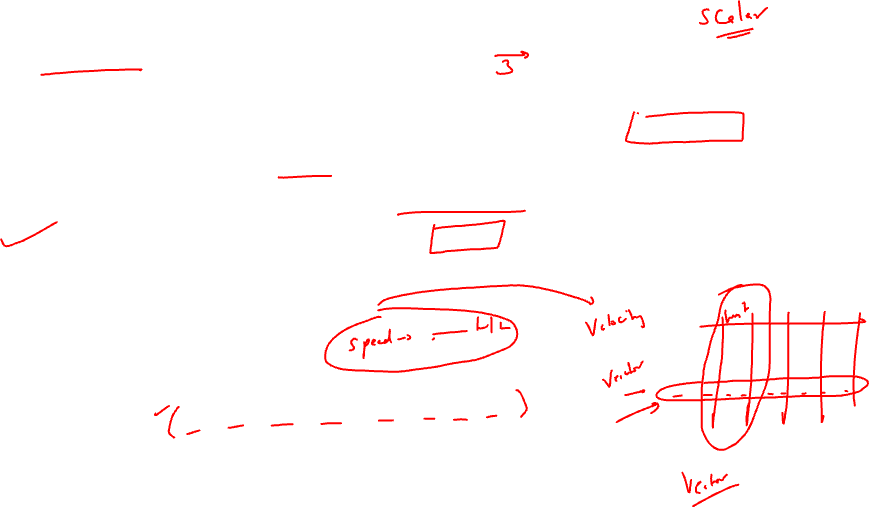 Scalar
3
Speed →
Velocity
Vector
Vector